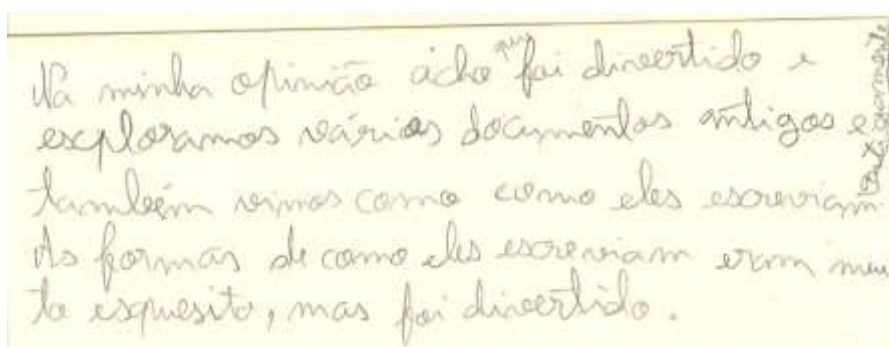 Na minha opinião acho que foi divertido e
exploramos vários documentos antigos e
também vimos como como eles escreviam antigamente
As formas de como eles escreviam eram mui
to esquesito, mas foi divertido.